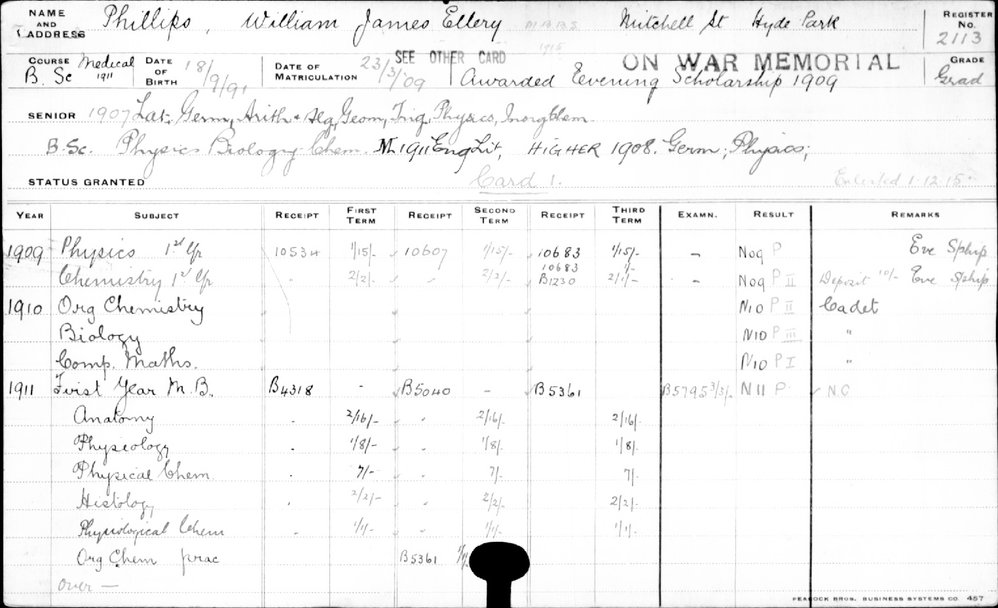 NAME AND ADDRESS Phillips, William James Ellery M.B.B.S. 1915 Mitchell St Hyde Park REGISTER No. 2113
COURSE Medical B. Sc 1911 DATE OF BIRTH 18/9/91 DATE OF MATRICULATION 23/3/09 SEE OTHER CARD ON WAR MEMORIAL Awarded Evening Scholarship 1909 GRADE Grad
SENIOR 1907 Lat, Germ, Arith & Alg, Geom, Trig, Physics, Inorg Chem
B.Sc. Physics Biology Chem. M 1911 Eng Lit, HIGHER 1908. Germ; Physics;
STATUS GRANTED Card 1. Enlisted 1.12.15.
YEAR SUBJECT RECEIPT FIRST TERM RECEIPT SECOND TERM RECEIPT THIRD TERM EXAMN. RESULT REMARKS
1909 Physics 1st Yr 10534 1/15/- 10607 1/15/- 10683 1/15/- - N09 P Eve S/ship
Chemistry 1st Yr " 2/2/- " 2/2/- 10683 B1230 2/1/- - N09 P II Deposit 10/- Eve S/ship
1910 Org Chemistry N10 P II Cadet
Biology N10 P III "
Comp. Maths. N10 P I "
1911 First Year M.B. B4318 - B5040 - B5361 B5795 3/3/- N11 P. N.C
Anatomy " 2/16/- " 2/16/- 2/16/-
Physeology " 1/8/- " 1/8/- 1/8/-
Physical Chem " 7/- " 7/- 7/-
Histology " 2/2/- " 2/2/- 2/2/-
Physiological Chem " 1/1/- " 1/1/- 1/1/-
Org Chem prac B5361
over —
PEACOCK BROS. BUSINESS SYSTEMS CO. 457